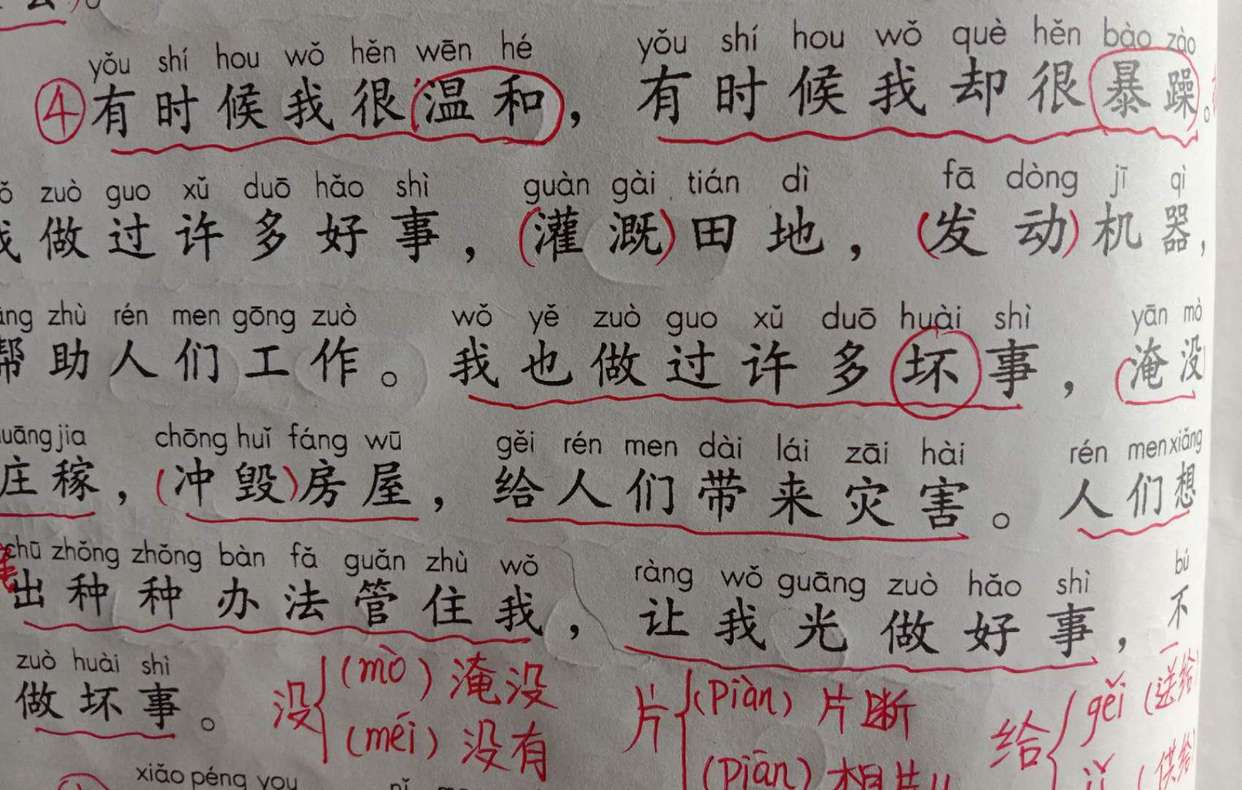 yǒu shí hou wǒ hěn wēn hé yǒu shí hou wǒ què hěn bào zào
④有时候我很温和，有时候我却很暴躁。
zuò guo xǔ duō hǎo shì guàn gài tián dì fā dòng jī qì
我做过许多好事，(灌溉)田地，(发动)机器，
zhù rén men gōng zuò wǒ yě zuò guo xǔ duō huài shì yān mò
帮助人们工作。我也做过许多坏事，(淹没
jia chōng huǐ fáng wū gěi rén men dài lái zāi hài rén men xiǎng
庄稼，(冲毁)房屋，给人们带来灾害。人们想
chū zhǒng zhǒng bàn fǎ guǎn zhù wǒ ràng wǒ guāng zuò hǎo shì bú
出种种办法管住我，让我光做好事，不
zuò huài shì
做坏事。
没 (mò) 淹没 片 (Piàn) 片断 给 gěi (送给
(méi) 没有 (piān) 相片儿 (供给
xiǎo péng you